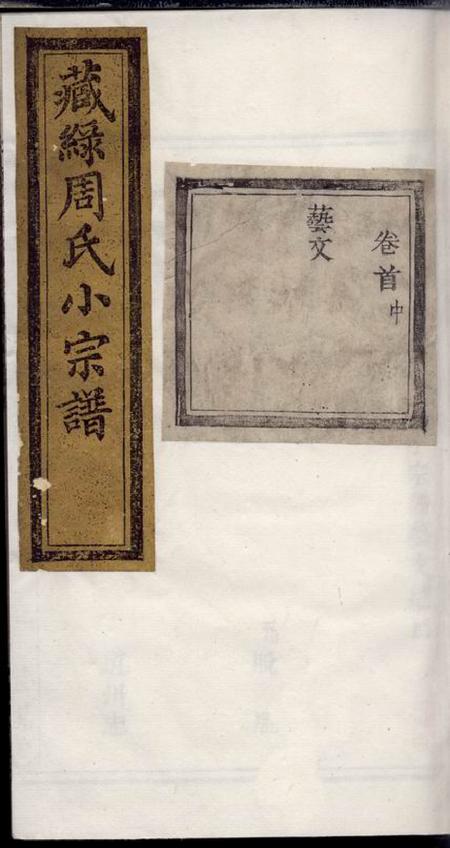 藏綠周氏小宗譜
卷首中
藝文